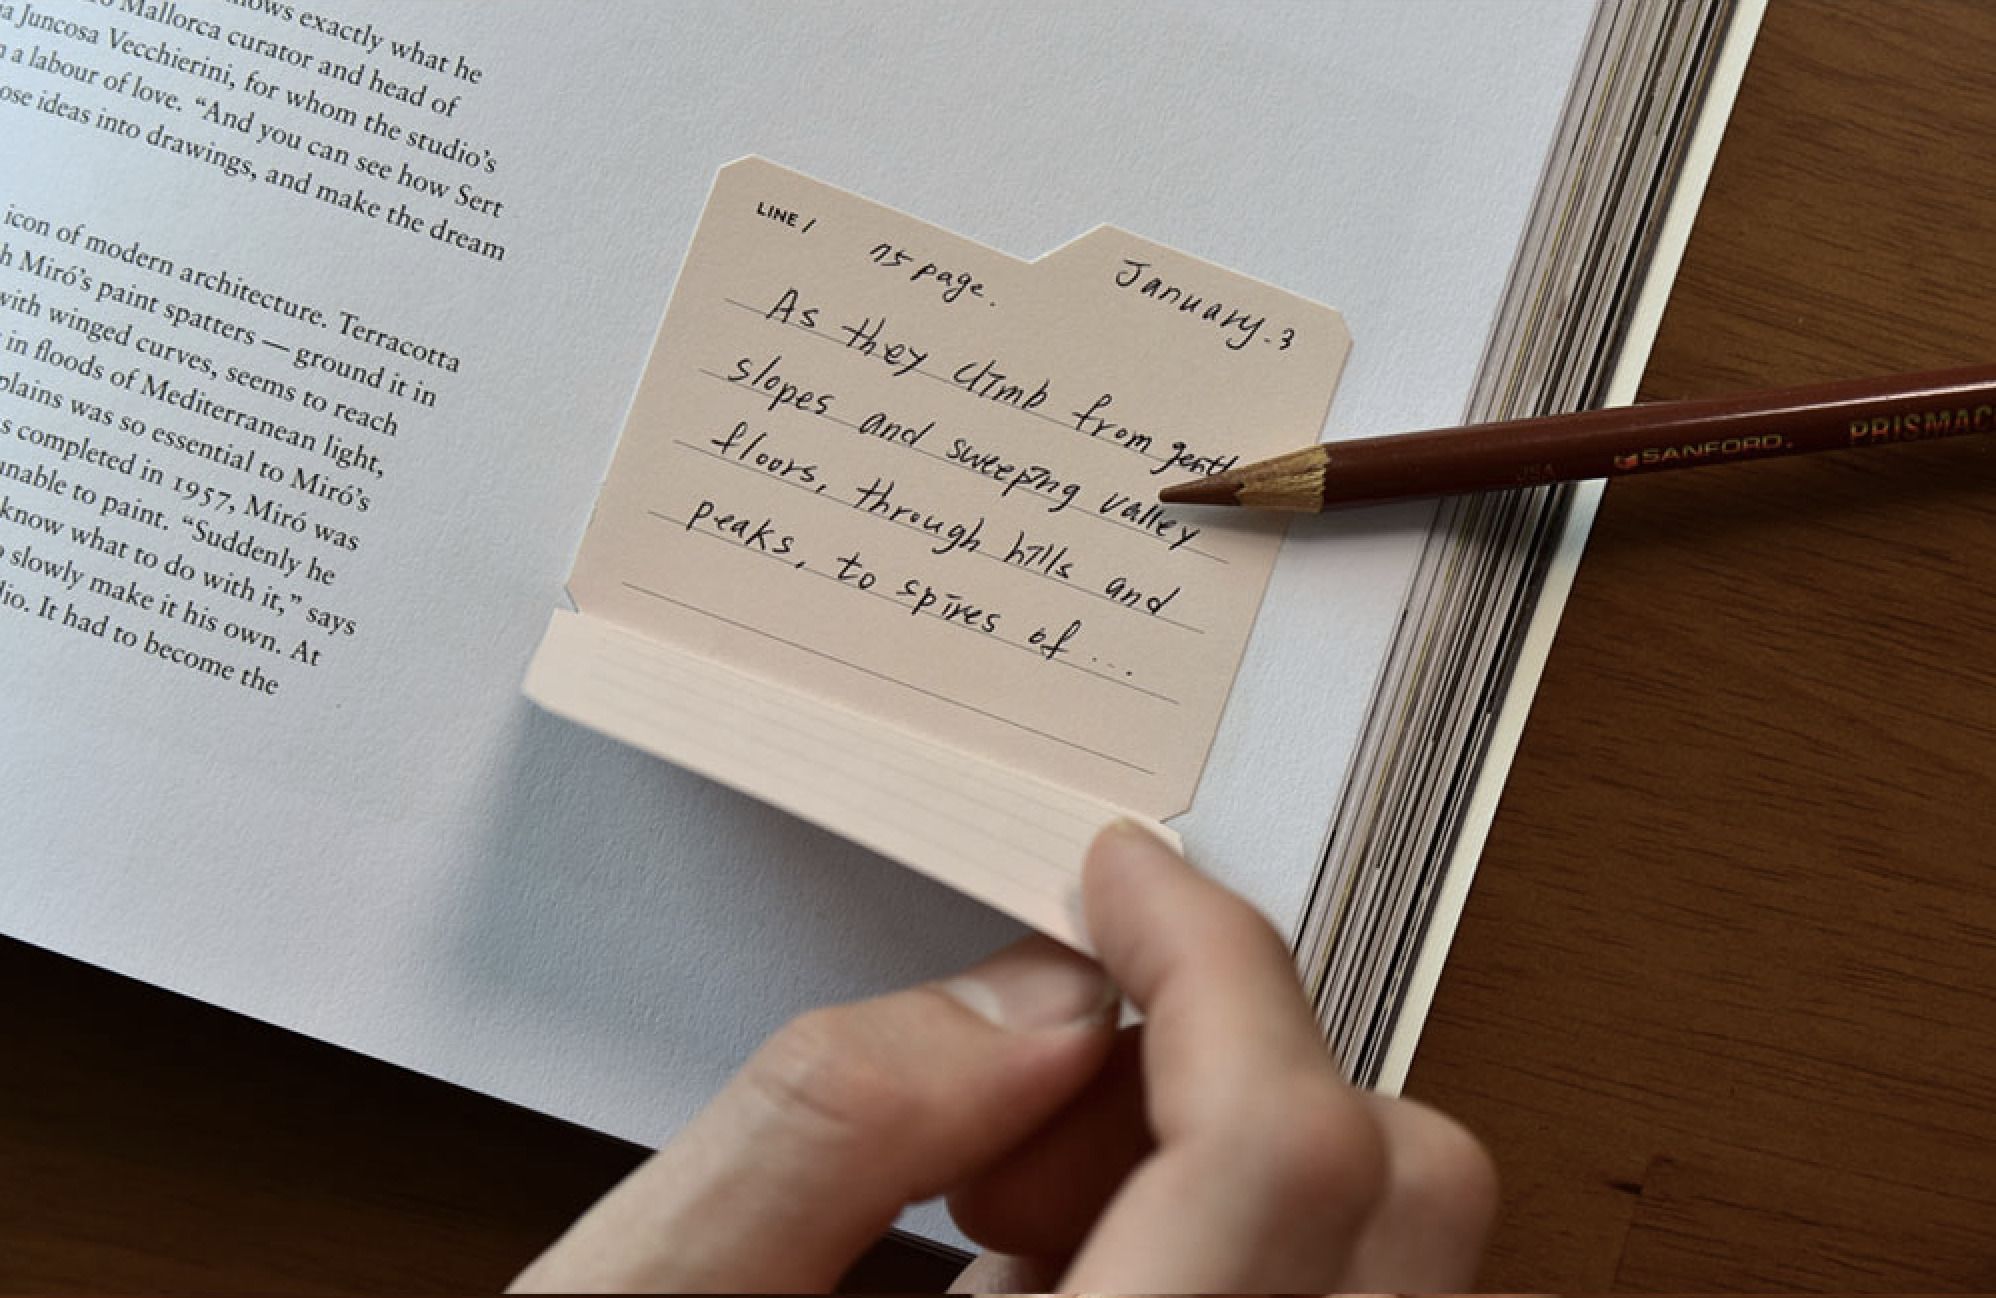 ows exactly what he
Mallorca curator and head of
Juncosa Vecchierini, for whom the studio's
a labour of love. “And you can see how Sert
ose ideas into drawings, and make the dream
icon of modern architecture. Terracotta
h Miró's paint spatters — ground it in
with winged curves, seems to reach
in floods of Mediterranean light,
plains was so essential to Miró's
s completed in 1957, Miró was
unable to paint. “Suddenly he
know what to do with it,” says
slowly make it his own. At
dio. It had to become the
LINE /
75 page.
January. 3
As they climb from gentl
slopes and sweeping valley
floors, through hills and
peaks, to spires of ...
SANFORD.
PRISMAC